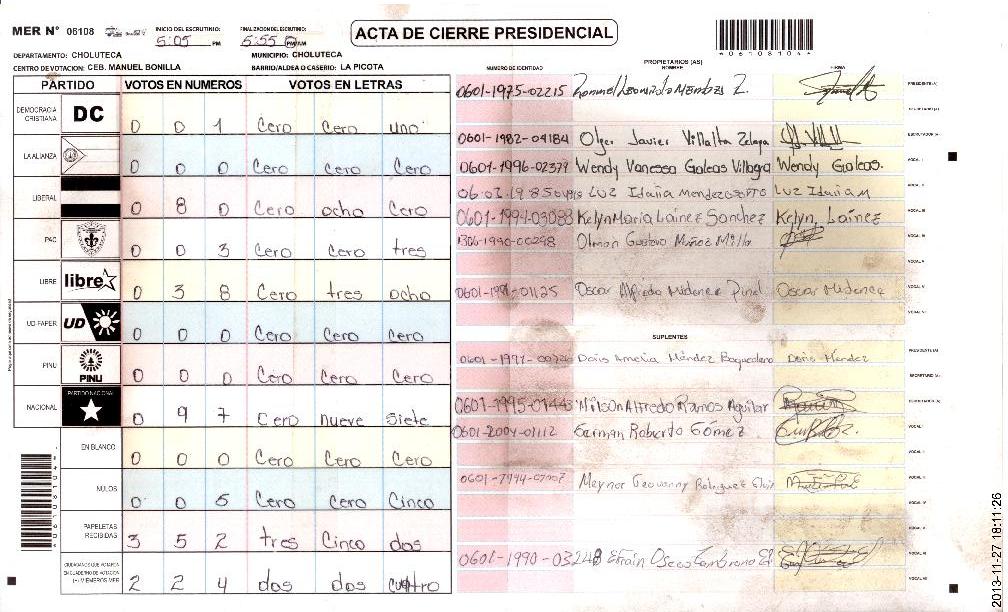 MER N° 06108
INICIO DEL ESCRUTINIO: 5:05 PM
FINALIZACION DEL ESCRUTINIO: 5:55 PM
ACTA DE CIERRE PRESIDENCIAL
*06108104*
DEPARTAMENTO: CHOLUTECA
MUNICIPIO: CHOLUTECA
CENTRO DE VOTACION: CEB. MANUEL BONILLA
BARRIO/ALDEA O CASERIO: LA PICOTA
PARTIDO VOTOS EN NUMEROS VOTOS EN LETRAS
DEMOCRACIA CRISTIANA DC 0 0 1 Cero Cero uno
LA ALIANZA 0 0 0 Cero Cero Cero
LIBERAL 0 8 0 Cero ocho Cero
PAC 0 0 3 Cero Cero tres
LIBRE libre 0 3 8 Cero tres ocho
UD-FAPER UD 0 0 0 Cero Cero Cero
PINU PINU 0 0 0 Cero Cero Cero
NACIONAL PARTIDO NACIONAL 0 9 7 Cero nueve siete
EN BLANCO 0 0 0 Cero Cero Cero
NULOS 0 0 5 Cero Cero Cinco
PAPELETAS RECIBIDAS 3 5 2 tres Cinco dos
CIUDADANOS QUE VOTARON EN CUADERNO DE VOTACION (+) MIEMBROS MER 2 2 4 dos dos cuatro
PROPIETARIOS (AS)
NUMERO DE IDENTIDAD NOMBRE FIRMA
0601-1975-02215 Mendez Z. PRESIDENTE(A)
SECRETARIO(A)
0601-1982-04184 Olger Javier Villalta Zelaya ESCRUTADOR(A)
0601-1996-02379 Wendy Vanessa Galeas Villagra Wendy Galeas. VOCAL I
LUZ Idaña Mendoza LUZ Idaña M VOCAL II
0601-1994-03083 Kelyn Maria Lainez Sanchez Kelyn, Laínez VOCAL III
1306-1990-00298 Olman Gustavo Muñoz Milla VOCAL IV
VOCAL V
Oscar Alfredo Midence Pinel Oscar Midence VOCAL VI
VOCAL VII
SUPLENTES
Doris Amelia Méndez Doris Méndez PRESIDENTE(A)
SECRETARIO(A)
0601-1995-01443 Wilson Alfredo Ramos Aguilar ESCRUTADOR(A)
0601-2004-01112 German Roberto Gómez. VOCAL I
VOCAL II
Meynor Geovanny Rodriguez VOCAL III
VOCAL IV
VOCAL V
0601-1990-03248 Efraín VOCAL VI
VOCAL VII
2013-11-27 18:11:26